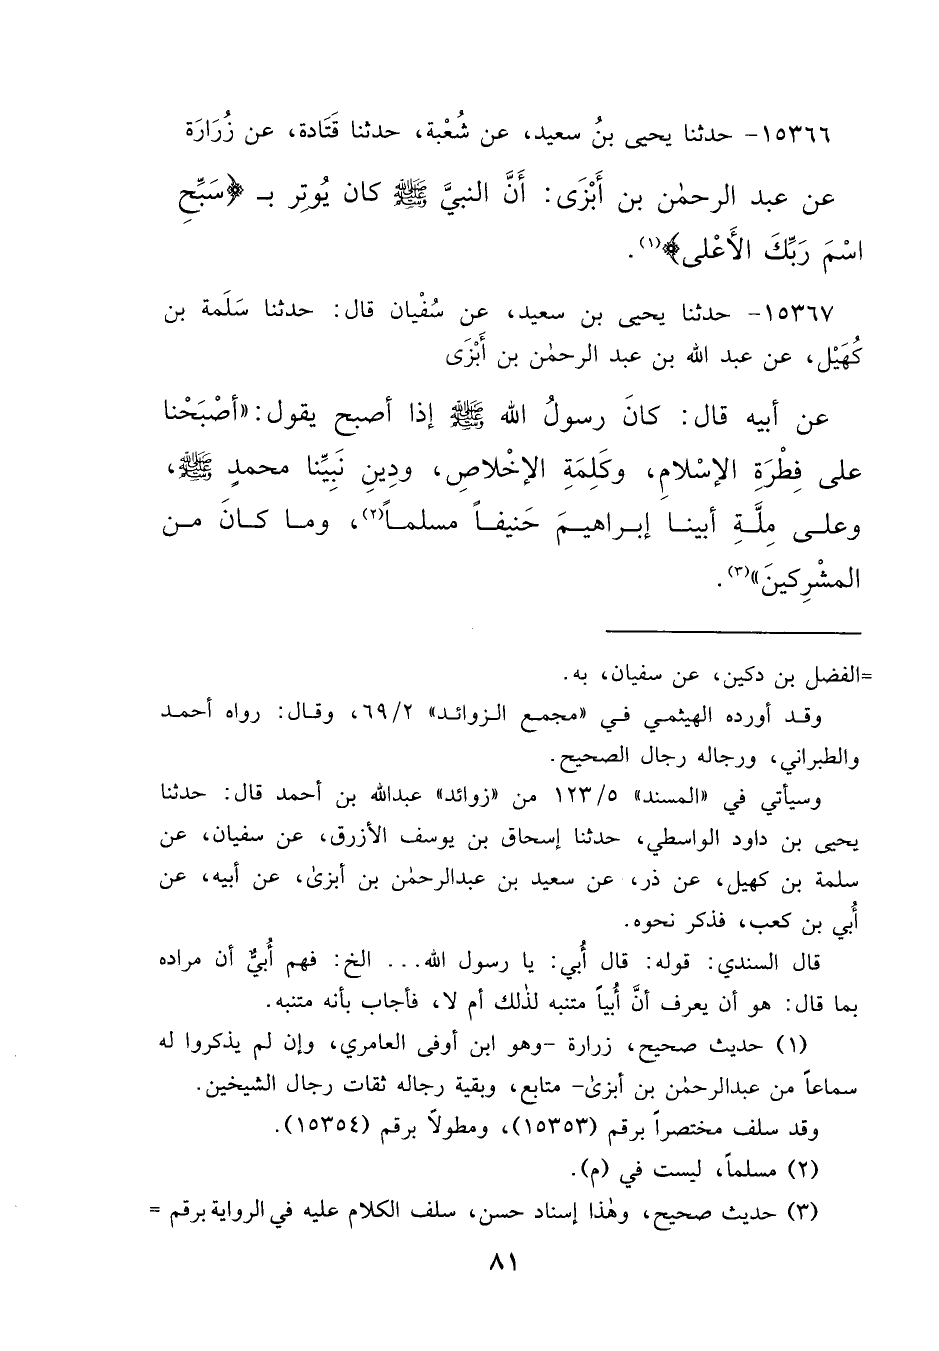 ١٥٣٦٦- حدثنا يحيى بنُ سعيد، عن شُعْبة، حدثنا قَتَادة، عن زُرَارَة
عن عبد الرحمٰن بن أَبْزَى: أَنَّ النبيَّ ﷺ كان يُوتِر بـ ﴿سَبِّحِ
اسْمَ رَبِّكَ الأَعْلى﴾(١).
١٥٣٦٧- حدثنا يحيى بن سعيد، عن سُفْيان قال: حدثنا سَلَمة بن
كُهَيْل، عن عبد الله بن عبد الرحمٰن بن أَبْزَى
عن أبيه قال: كانَ رسولُ الله ﷺ إذا أصبح يقول: «أصْبَحْنا
على فِطْرَةِ الإسْلامِ، وكَلِمَةِ الإخْلاصِ، ودِينِ نَبِيِّنا محمدٍ ﷺ،
وعلى مِلَّةِ أبينا إبراهيمَ حَنيفاً مسلماً(٢)، وما كانَ من
المشْرِكينَ»(٣).
=الفضل بن دكين، عن سفيان، به.
وقد أورده الهيثمي في «مجمع الزوائد» ٦٩/٢، وقال: رواه أحمد
والطبراني، ورجاله رجال الصحيح.
وسيأتي في «المسند» ١٢٣/٥ من «زوائد» عبدالله بن أحمد قال: حدثنا
يحيى بن داود الواسطي، حدثنا إسحاق بن يوسف الأزرق، عن سفيان، عن
سلمة بن كهيل، عن ذر، عن سعيد بن عبدالرحمٰن بن أبزىٰ، عن أبيه، عن
أُبي بن كعب، فذكر نحوه.
قال السندي: قوله: قال أُبي: يا رسول الله... الخ: فهم أُبيٌّ أن مراده
بما قال: هو أن يعرف أنَّ أُبياً متنبه لذٰلك أم لا، فأجاب بأنه متنبه.
(١) حديث صحيح، زرارة -وهو ابن أوفى العامري، وإن لم يذكروا له
سماعاً من عبدالرحمٰن بن أبزىٰ- متابع، وبقية رجاله ثقات رجال الشيخين.
وقد سلف مختصراً برقم (١٥٣٥٣)، ومطولاً برقم (١٥٣٥٤).
(٢) مسلماً، ليست في (م).
(٣) حديث صحيح، وهٰذا إسناد حسن، سلف الكلام عليه في الرواية برقم =
٨١